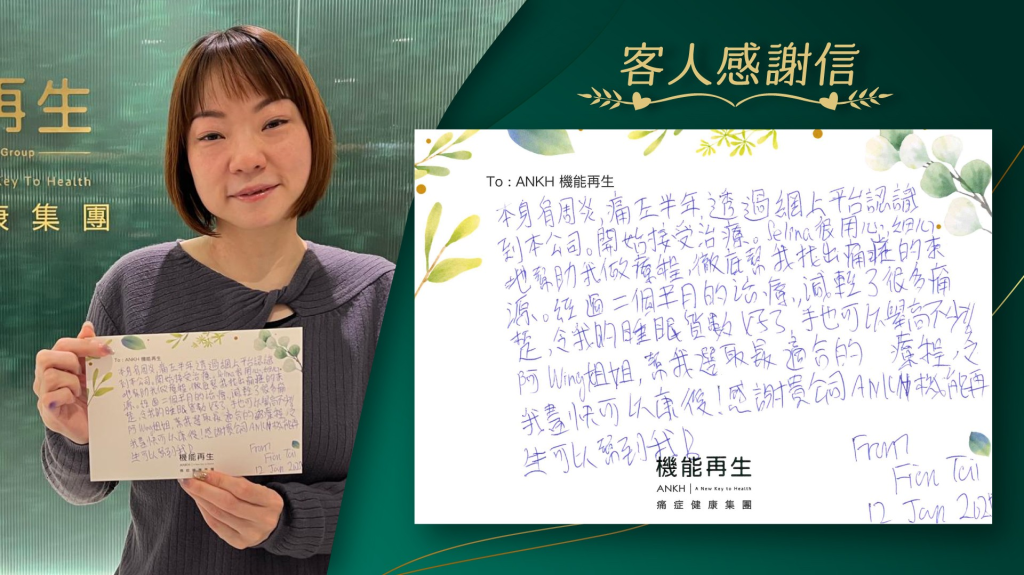 再生
Group
Key To Health
康集團
客人感謝信
To : ANKH 機能再生
本身有周炎,痛左半年,透過網上平台認識
到本公司。開始接受治療。Selina很用心,細心
地幫助我做療程,徹底幫我找出痛症的來
源。經過二個半月的治療,減輕了很多痛
楚,令我的睡眠質數好了,手也可以舉高不少
阿Wing姐姐,幫我選取最適合的 療程,令
我盡快可以康復!感謝貴公司ANKH機能再
生可以幫到我
From
Fion Tai
12 Jan 2025
機能再生
ANKH | A New Key to Health
痛症健康集團
To : ANKH 機能再生
機能再生
From
Fion Tai
12 Jan 2025